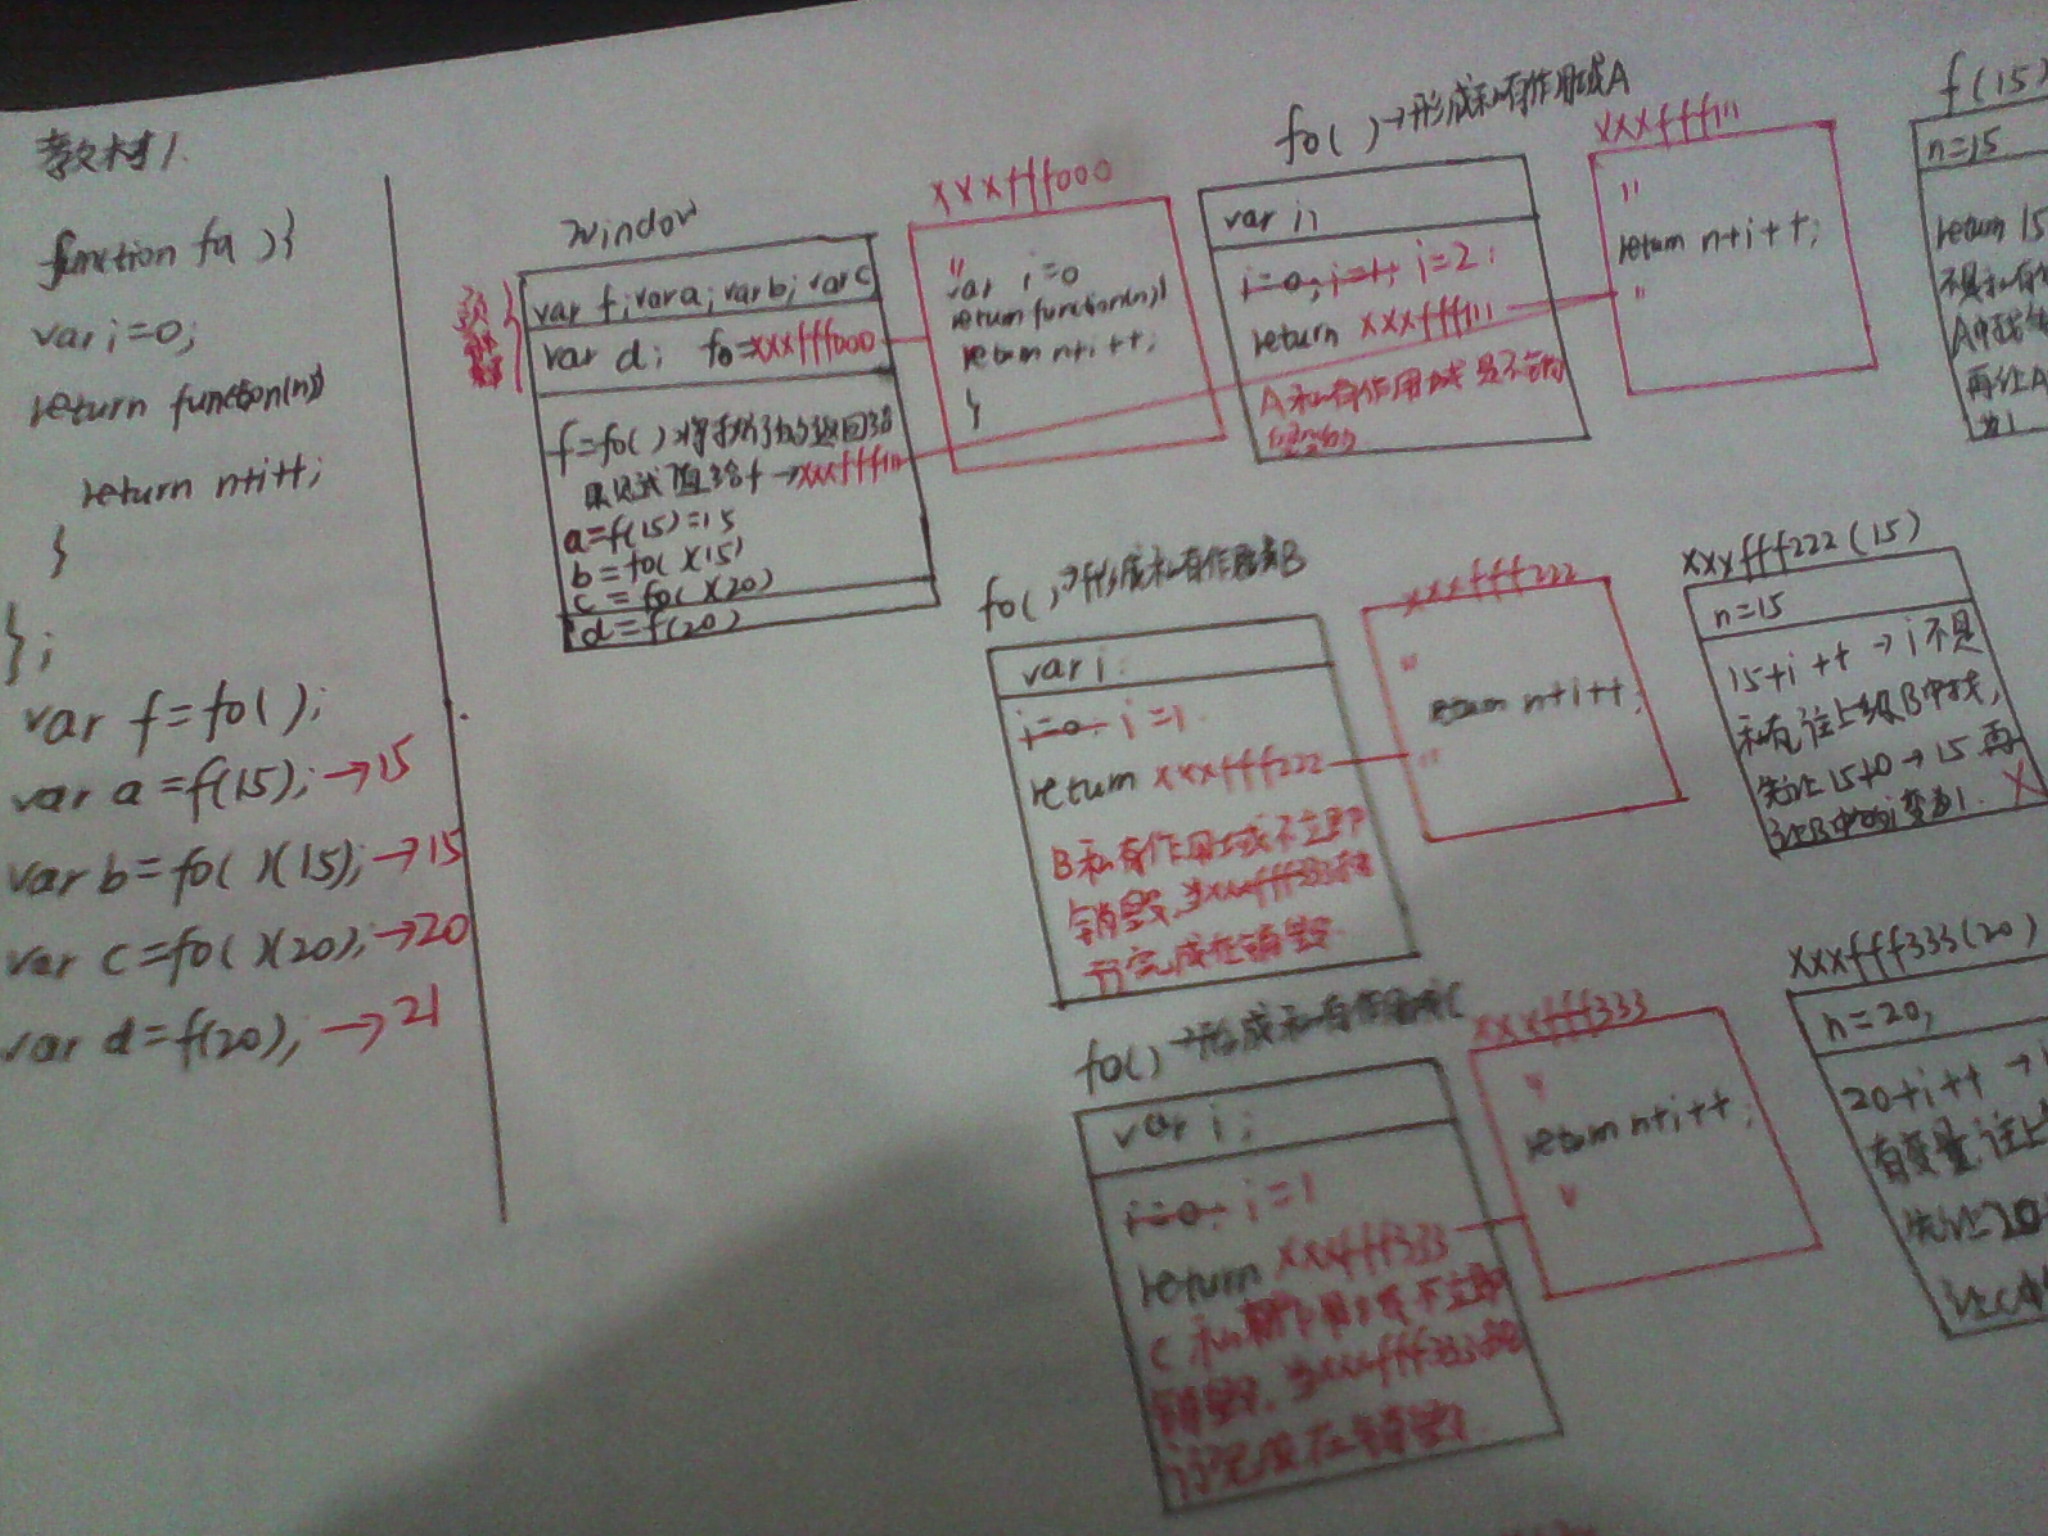 教材1.
function fo(){
var i=0;
return function(n){
return n+i++;
}
};
var f=fo();
var a=f(15);→15
var b=fo()(15);→15
var c=fo()(20);→20
var d=f(20);→21
window
预解释
var f;var a;var b;var c
var d; fo=xxxfff000
f=fo()
→xxxfff111
a=f(15)=15
b=fo()(15)
c=fo()(20)
d=f(20)
xxxfff000
"
var i=0
return function(n){
return n+i++;
}
fo()→形成私有作用域A
var i;
i=0; i=1; i=2;
return xxxfff111
A私有作用域是不销毁
xxxfff111
"
return n+i++;
"
f(15)
n=15
return 15
不是私有
A中找
再让A
为1
fo()→形成私有作用域B
var i;
i=0; i=1.
return xxxfff222
B私有作用域不立即
销毁,当xxxfff222执
行完成在销毁
xxxfff222
"
return n+i++;
"
xxxfff222(15)
n=15
15+i++→i不是
私有往上级B中找,
先让15+0→15再
让B中的i变为1.
fo()→形成私有作用域C
var i;
i=0; i=1
return xxxfff333
C私有作用域不立即
销毁,当xxxfff333执
行完成在销毁
xxxfff333
"
return n+i++;
"
xxxfff333(20)
n=20,
20+i++→
有变量,往上
先让20
让C中